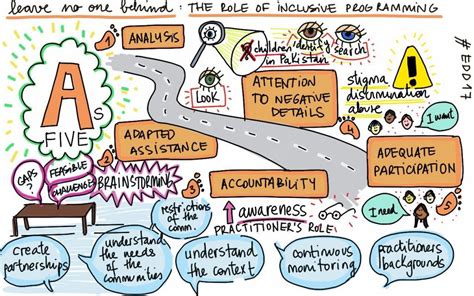 leave no one behind: THE ROLE OF INCLUSIVE PROGRAMMING
#EDD17
A s
FIVE
1
ANALYSIS
children identify search
in Pakistan
Look
2
ATTENTION
TO NEGATIVE
DETAILS
stigma
discrimination
abuse
!
I want
4
ADEQUATE
PARTICIPATION
I need
5
ADAPTED
ASSISTANCE
3
ACCOUNTABILITY
GAPS?
FEASIBLE
CHALLENGE
BRAINSTORMING
awareness
PRACTITIONER'S ROLE:
create
partnerships
understand
the needs
of the
communities
restrictions
of the
comm.
understand
the context
continuous
monitoring
practitioners
backgrounds